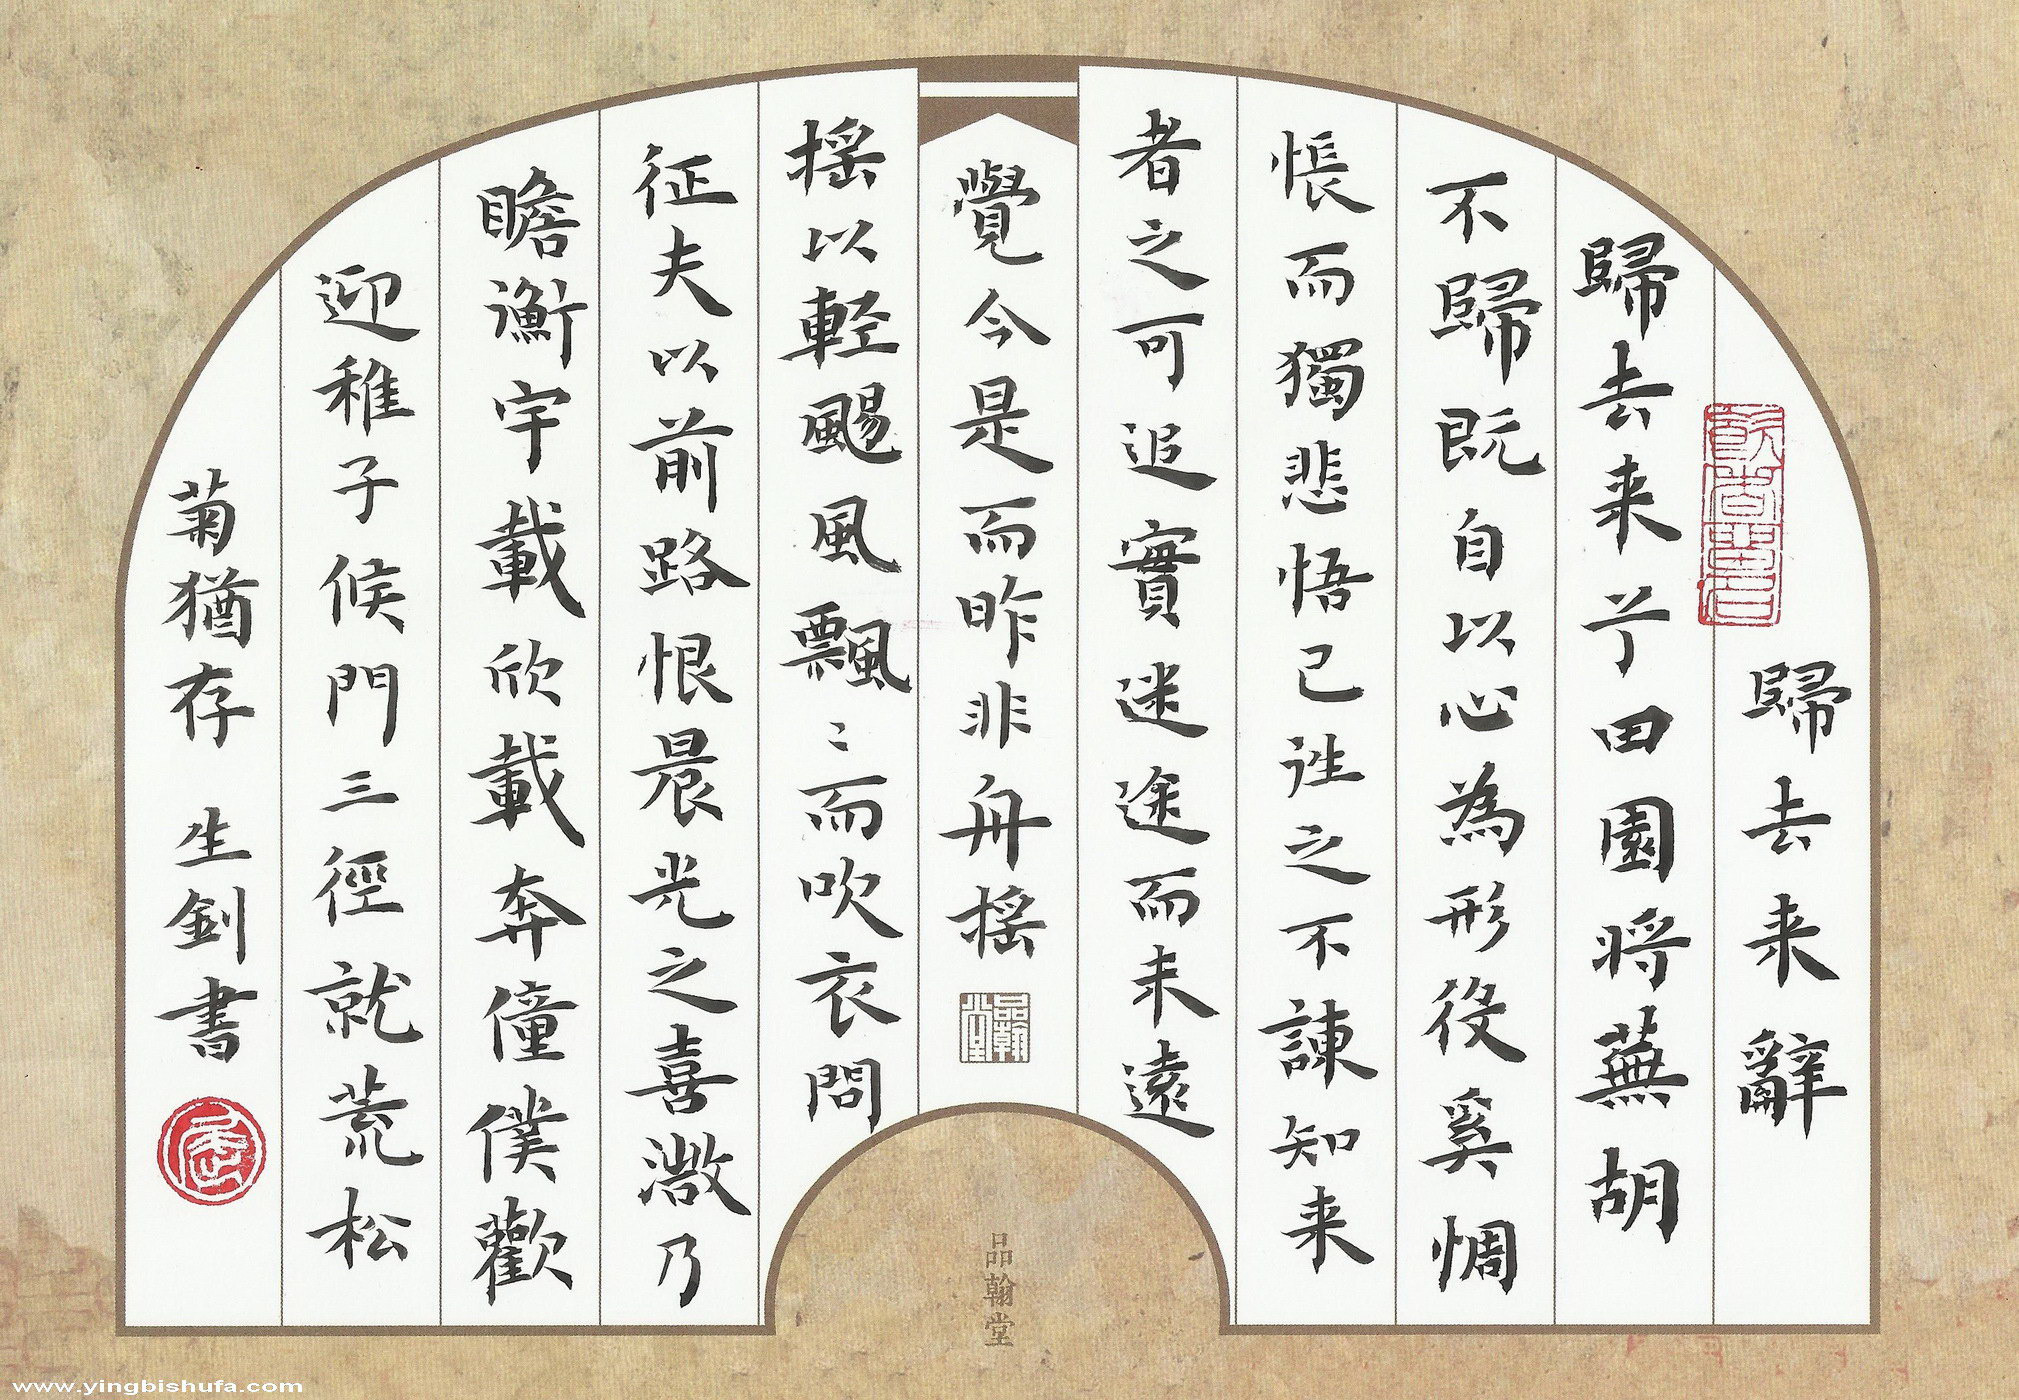 歸去来辭
歸去来兮田園将蕪胡
不歸既自以心為形役奚惆
悵而獨悲悟已往之不諫知来
者之可追實迷途而未遠
覺今是而昨非舟摇
品翰堂
摇以輕颺風飄〻而吹衣問
征夫以前路恨晨光之喜溦乃
瞻衡宇載欣載奔僮僕歡
迎稚子候門三徑就荒松
菊猶存 生釗書
品翰堂
www.yingbishufa.com